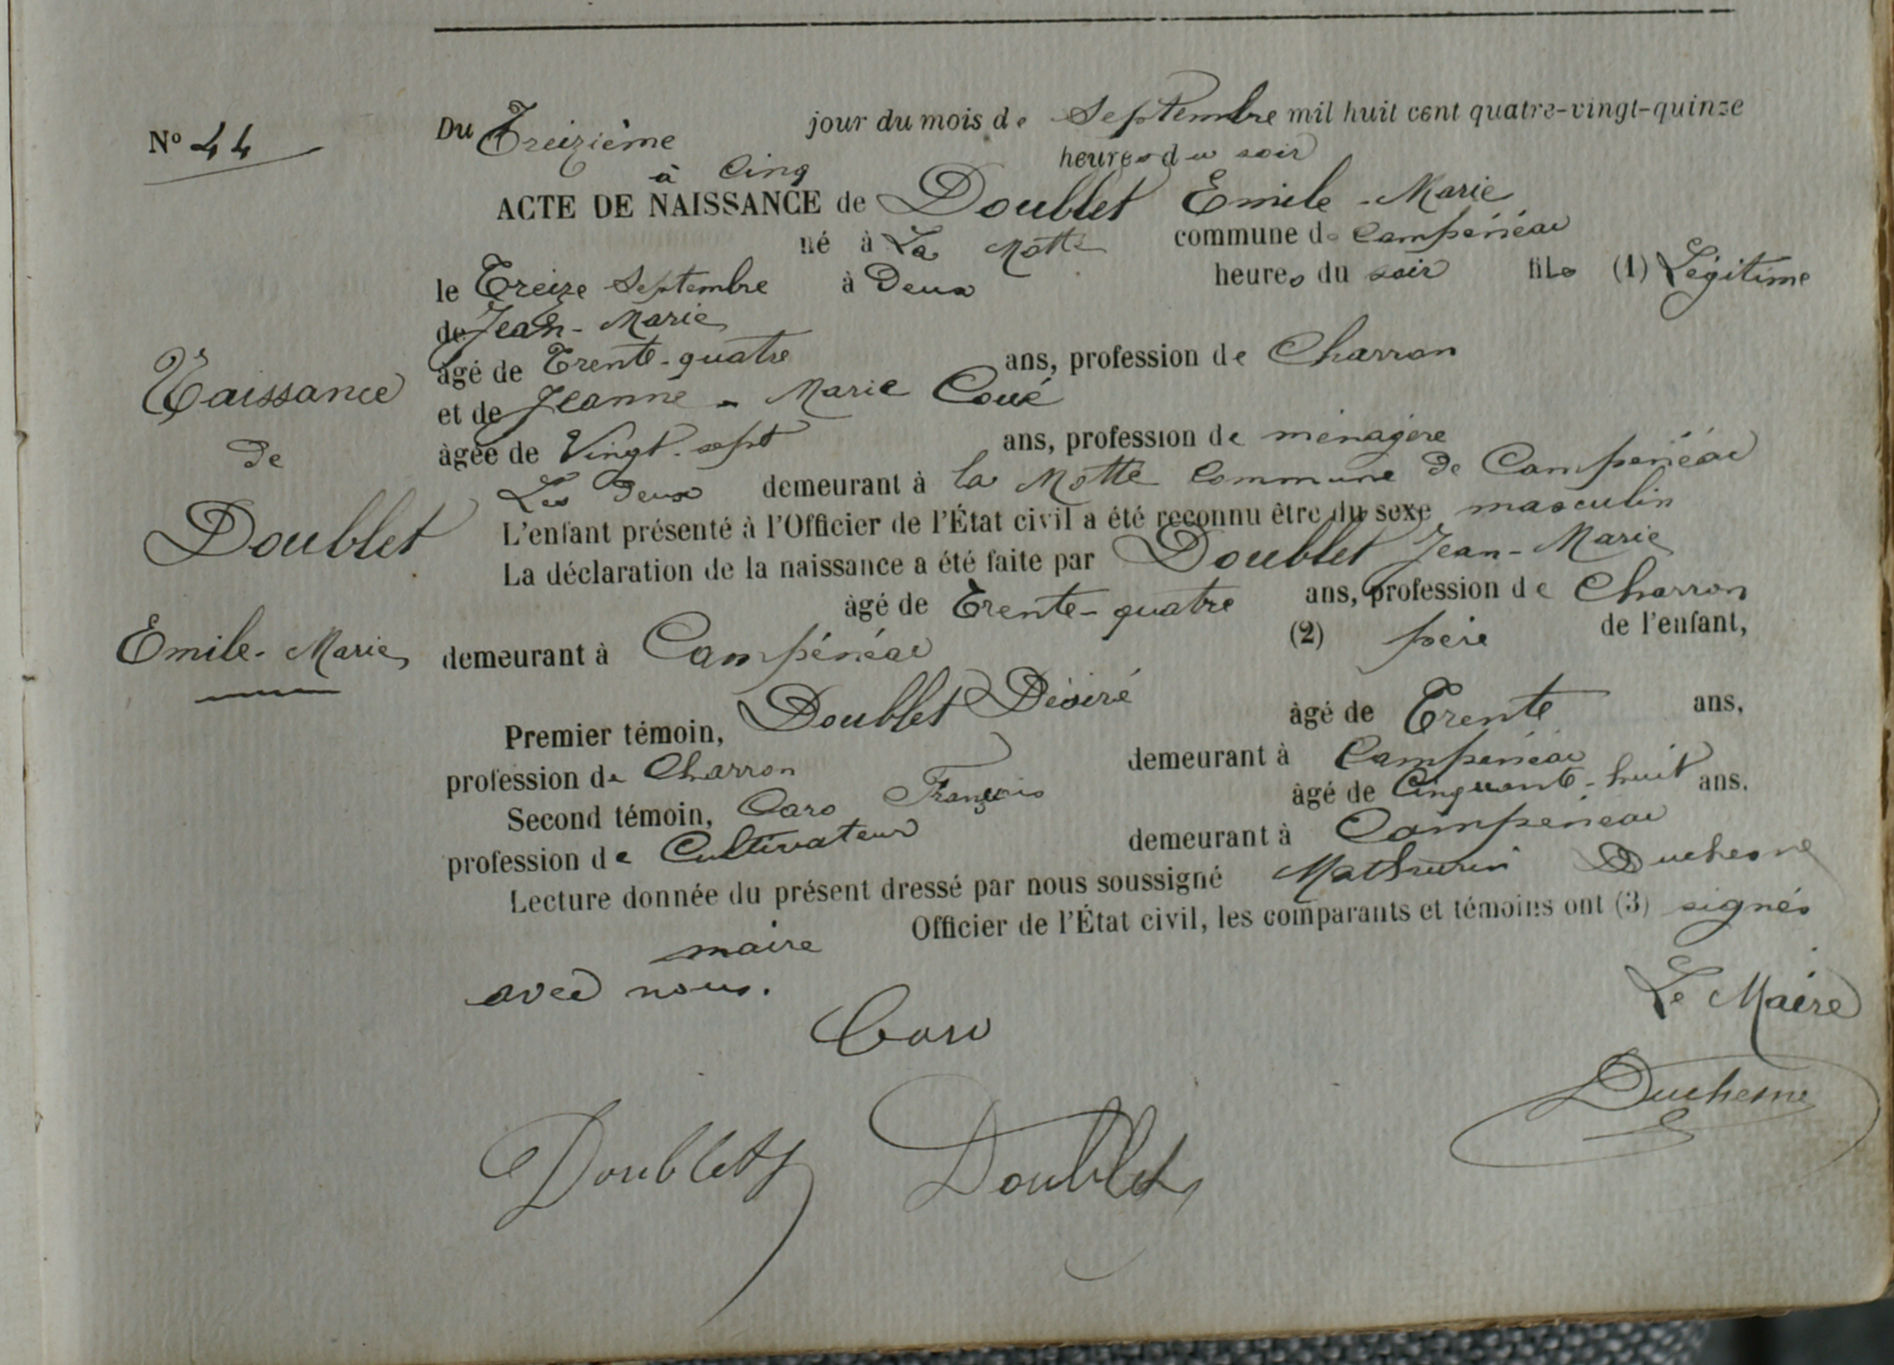 N° 44
Du Treizième jour du mois de Septembre mil huit cent quatre-vingt-quinze
à Cinq heures du soir
ACTE DE NAISSANCE de Doublet Emile-Marie
né à La Motte commune de Campénéac
le Treize Septembre à Deux heures du soir fils (1) Légitime
de Jean-Marie
âgé de Trente-quatre ans, profession de Charron
et de Jeanne-Marie Coué
âgée de Vingt-sept ans, profession de ménagère
Les Deux demeurant à la Motte Commune de Campénéac
L'enfant présenté à l'Officier de l'État civil a été reconnu être du sexe masculin
La déclaration de la naissance a été faite par Doublet Jean-Marie
âgé de Trente-quatre ans, profession de Charron
demeurant à Campénéac (2) père de l'enfant,
Premier témoin, Doublet Désiré âgé de Trente ans,
profession de Charron demeurant à Campénéac
Second témoin, Caro François âgé de Cinquante-huit ans.
profession de Cultivateur demeurant à Campénéac
Lecture donnée du présent dressé par nous soussigné Mathurin Duchesne
maire Officier de l'État civil, les comparants et témoins ont (3) signés
avec nous.
Naissance
de
Doublet
Emile-Marie
Le Maire
Caro
Duchesne
Doublet Doublet